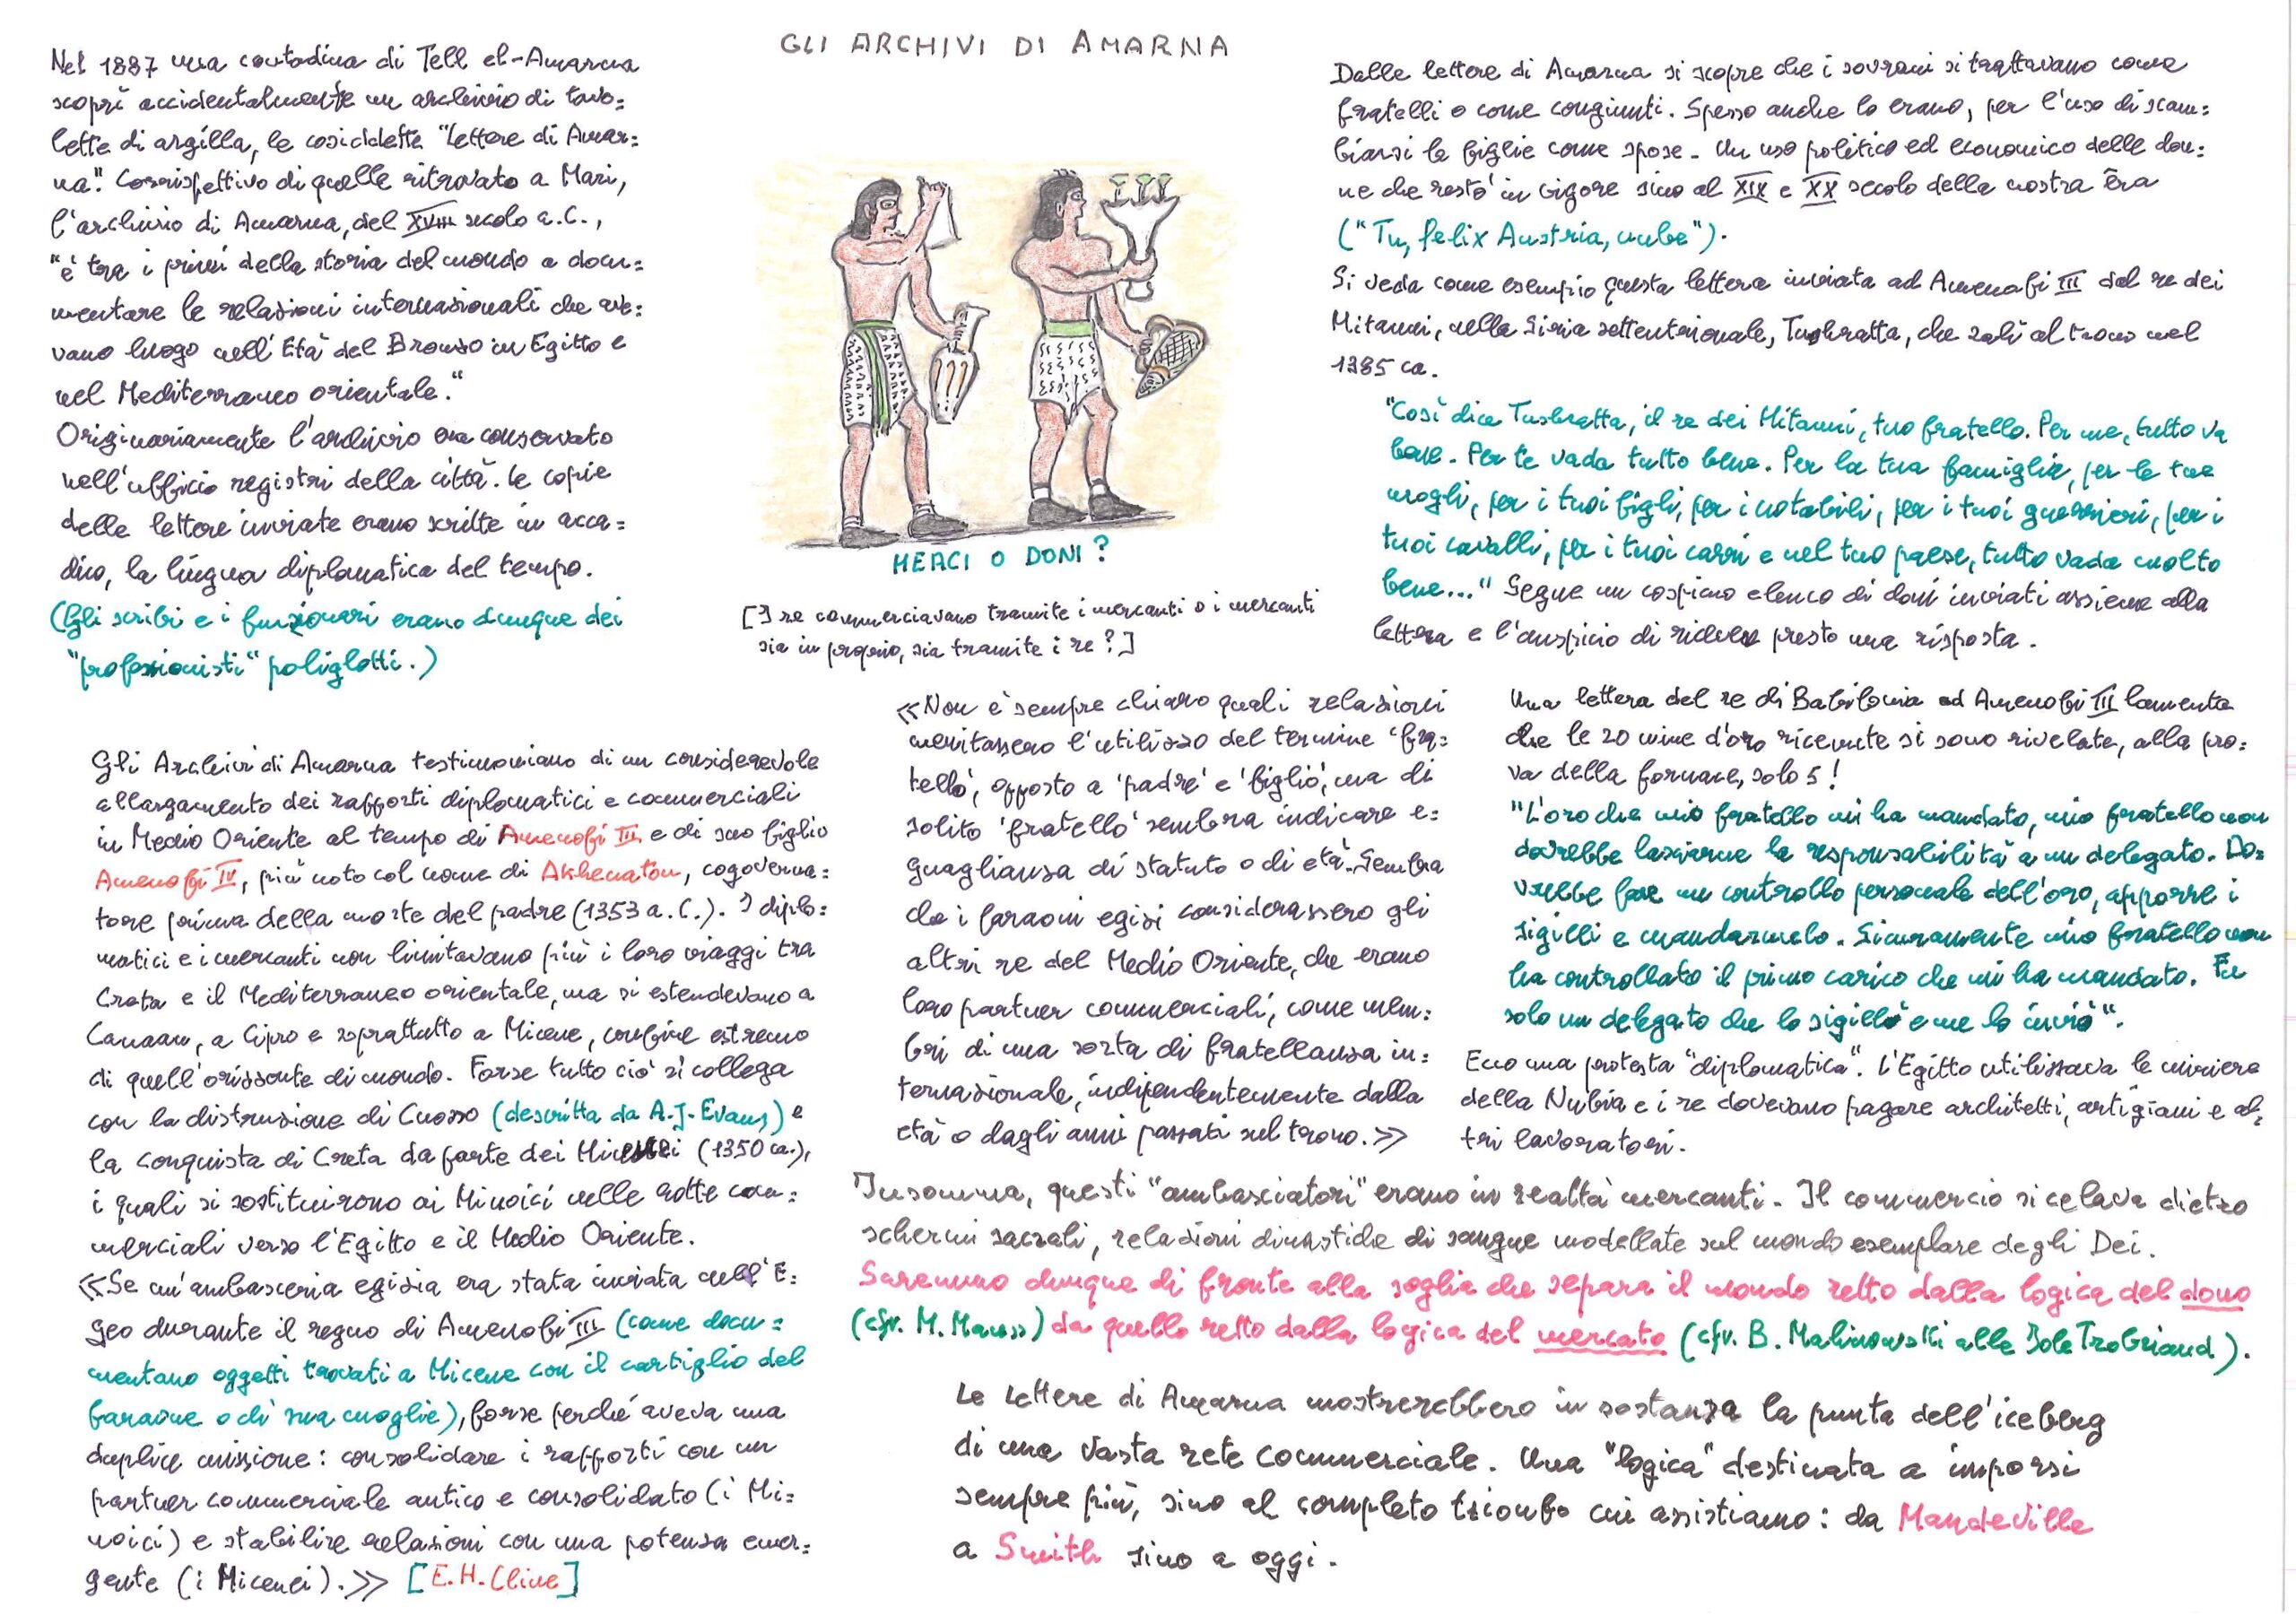 GLI ARCHIVI DI AMARNA
Nel 1887 una contadina di Tell el-Amarna
scoprì accidentalmente un archivio di tavo=
lette di argilla, le cosiddette "Lettere di Amar=
na". Corrispettivo di quelle ritrovate a Mari,
l'archivio di Amarna, del XVIII secolo a.C.,
"è tra i primi della storia del mondo a docu=
mentare le relazioni internazionali che ave=
vano luogo nell'Età del Bronzo in Egitto e
nel Mediterraneo orientale."
Originariamente l'archivio era conservato
nell'ufficio registri della città. Le copie
delle lettere inviate erano scritte in acca=
dico, la lingua diplomatica del tempo.
(Gli scribi e i funzionari erano dunque dei
"professionisti" poliglotti.)
Gli Archivi di Amarna testimoniano di un considerevole
allargamento dei rapporti diplomatici e commerciali
in Medio Oriente al tempo di Amenofi III e di suo figlio
Amenofi IV, più noto col nome di Akhenaton, cogoverna=
tore prima della morte del padre (1353 a.C.). I diplo=
matici e i mercanti non limitavano più i loro viaggi tra
Creta e il Mediterraneo orientale, ma si estendevano a
Canaan, a Cipro e soprattutto a Micene, confine estremo
di quell'orizzonte di mondo. Forse tutto ciò si collega
con la distruzione di Cnosso (descritta da A.J. Evans) e
la conquista di Creta da parte dei Micenei (1350 ca.),
i quali si sostituirono ai Minoici nelle rotte com=
merciali verso l'Egitto e il Medio Oriente.
«Se un'ambasceria egizia era stata inviata nell'E=
geo durante il regno di Amenofi III (come docu=
mentano oggetti trovati a Micene con il cartiglio del
faraone o di sua moglie), forse perché aveva una
duplice missione: consolidare i rapporti con un
partner commerciale antico e consolidato (i Mi=
noici) e stabilire relazioni con una potenza emer=
gente (i Micenei).» [E.H. Cline]
MERCI O DONI?
[I re commerciavano tramite i mercanti o i mercanti
sia in proprio, sia tramite i re?]
«Non è sempre chiaro quali relazioni
meritassero l'utilizzo del termine 'fra=
tello', opposto a 'padre' e 'figlio', ma di
solito 'fratello' sembra indicare e=
guaglianza di statuto o di età. Sembra
che i faraoni egizi considerassero gli
altri re del Medio Oriente, che erano
loro partner commerciali, come mem=
bri di una sorta di fratellanza in=
ternazionale, indipendentemente dalla
età o dagli anni passati sul trono.»
Dalle lettere di Amarna si scopre che i sovrani si trattavano come
fratelli o come congiunti. Spesso anche lo erano, per l'uso di scam=
biarsi le figlie come spose. Un uso politico ed economico delle don=
ne che restò in vigore sino al XIX e XX secolo della nostra èra
("Tu, felix Austria, nube").
Si veda come esempio questa lettera inviata ad Amenofi III dal re dei
Mitanni, nella Siria settentrionale, Tushratta, che salì al trono nel
1385 ca.
"Così dice Tushratta, il re dei Mitanni, tuo fratello. Per me, tutto va
bene. Per te vada tutto bene. Per la tua famiglia, per le tue
mogli, per i tuoi figli, per i notabili, per i tuoi guerrieri, per i
tuoi cavalli, per i tuoi carri e nel tuo paese, tutto vada molto
bene..." Segue un cospicuo elenco di doni inviati assieme alla
lettera e l'auspicio di ricevere presto una risposta.
Una lettera del re di Babilonia ad Amenofi III lamenta
che le 20 mine d'oro ricevute si sono rivelate, alla pro=
va della fornace, solo 5!
"L'oro che mio fratello mi ha mandato, mio fratello non
dovrebbe lasciarne la responsabilità a un delegato. Do=
vrebbe fare un controllo personale dell'oro, apporre i
sigilli e mandarmelo. Sicuramente mio fratello non
ha controllato il primo carico che mi ha mandato. Fu
solo un delegato che lo sigillò e me lo inviò".
Ecco una protesta "diplomatica". L'Egitto utilizzava le miniere
della Nubia e i re dovevano pagare architetti, artigiani e al=
tri lavoratori.
Insomma, questi "ambasciatori" erano in realtà mercanti. Il commercio si celava dietro
schermi sacrali, relazioni dinastiche di sangue modellate sul mondo esemplare degli Dei.
Saremmo dunque di fronte alla soglia che separa il mondo retto dalla logica del dono
(cfr. M. Mauss) da quello retto dalla logica del mercato (cfr. B. Malinowski alle Isole Trobriand).
Le Lettere di Amarna mostrerebbero in sostanza la punta dell'iceberg
di una vasta rete commerciale. Una "logica" destinata a imporsi
sempre più, sino al completo trionfo cui assistiamo: da Mandeville
a Smith sino a oggi.